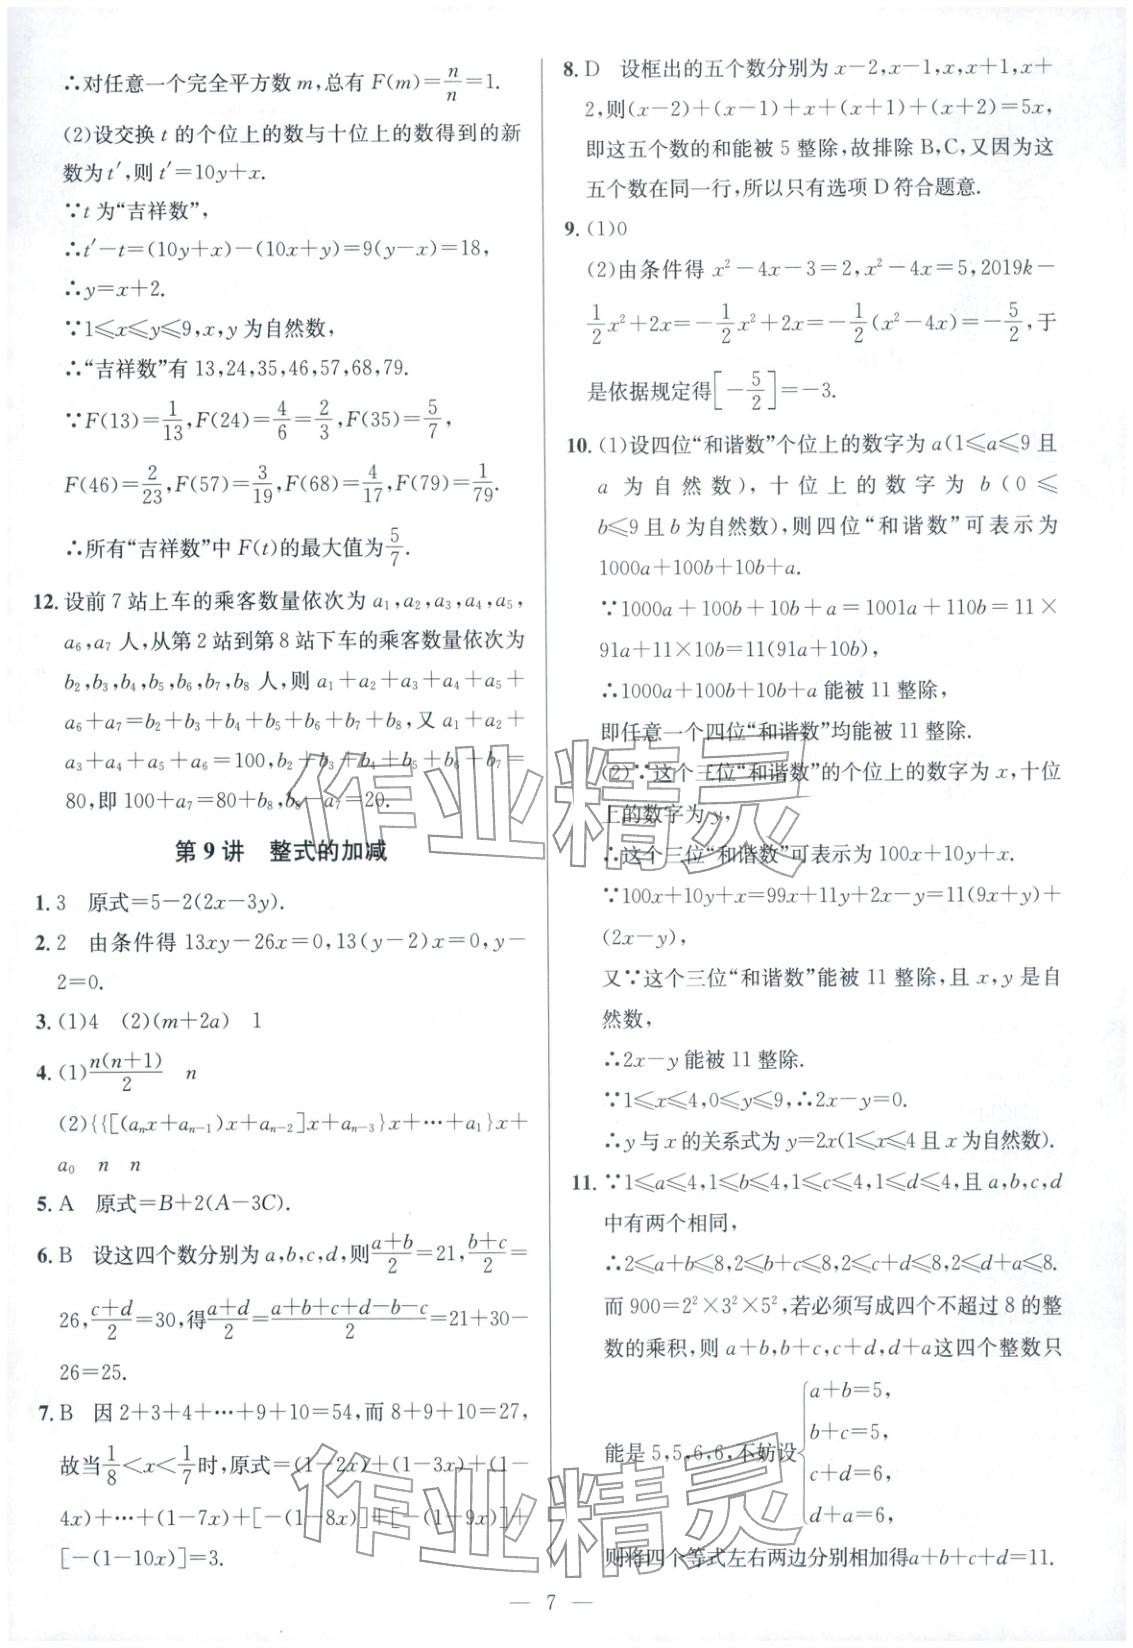 ∴对任意一个完全平方数 m,总有 F(m)=n/n=1.
(2)设交换 t 的个位上的数与十位上的数得到的新
数为 t′,则 t′=10y+x.
∵t 为“吉祥数”,
∴t′-t=(10y+x)-(10x+y)=9(y-x)=18,
∴y=x+2.
∵1⩽x⩽y⩽9,x,y 为自然数,
∴“吉祥数”有 13,24,35,46,57,68,79.
∵F(13)=1/13,F(24)=4/6=2/3,F(35)=5/7,
F(46)=2/23,F(57)=3/19,F(68)=4/17,F(79)=1/79.
∴所有“吉祥数”中 F(t)的最大值为5/7.
12. 设前 7 站上车的乘客数量依次为 a₁,a₂,a₃,a₄,a₅,
a₆,a₇ 人,从第 2 站到第 8 站下车的乘客数量依次为
b₂,b₃,b₄,b₅,b₆,b₇,b₈ 人,则 a₁+a₂+a₃+a₄+a₅+
a₆+a₇=b₂+b₃+b₄+b₅+b₆+b₇+b₈,又 a₁+a₂+
a₃+a₄+a₅+a₆=100,b₂+b₃+b₄+b₅+b₆+b₇=
80,即 100+a₇=80+b₈,b₈-a₇=20.
第 9 讲 整式的加减
1. 3 原式=5-2(2x-3y).
2. 2 由条件得 13xy-26x=0,13(y-2)x=0,y-
2=0.
3. (1)4 (2)(m+2a) 1
4. (1)n(n+1)/2 n
(2){{[(aₙx+aₙ₋₁)x+aₙ₋₂]x+aₙ₋₃}x+⋯+a₁}x+
a₀ n n
5. A 原式=B+2(A-3C).
6. B 设这四个数分别为 a,b,c,d,则(a+b)/2=21,(b+c)/2=
26,(c+d)/2=30,得(a+d)/2=(a+b+c+d-b-c)/2=21+30-
26=25.
7. B 因 2+3+4+⋯+9+10=54,而 8+9+10=27,
故当1/8<x<1/7时,原式=(1-2x)+(1-3x)+(1-
4x)+⋯+(1-7x)+[-(1-8x)]+[-(1-9x)]+
[-(1-10x)]=3.
8. D 设框出的五个数分别为 x-2,x-1,x,x+1,x+
2,则(x-2)+(x-1)+x+(x+1)+(x+2)=5x,
即这五个数的和能被 5 整除,故排除 B,C,又因为这
五个数在同一行,所以只有选项 D 符合题意.
9. (1)0
(2)由条件得 x²-4x-3=2,x²-4x=5,2019k-
1/2x²+2x=-1/2x²+2x=-1/2(x²-4x)=-5/2,于
是依据规定得[-5/2]=-3.
10. (1)设四位“和谐数”个位上的数字为 a(1⩽a⩽9 且
a 为自然数),十位上的数字为 b(0⩽
b⩽9 且 b 为自然数),则四位“和谐数”可表示为
1000a+100b+10b+a.
∵1000a+100b+10b+a=1001a+110b=11×
91a+11×10b=11(91a+10b),
∴1000a+100b+10b+a 能被 11 整除,
即任意一个四位“和谐数”均能被 11 整除.
(2)∵这个三位“和谐数”的个位上的数字为 x,十位
上的数字为 y,
∴这个三位“和谐数”可表示为 100x+10y+x.
∵100x+10y+x=99x+11y+2x-y=11(9x+y)+
(2x-y),
又∵这个三位“和谐数”能被 11 整除,且 x,y 是自
然数,
∴2x-y 能被 11 整除.
∵1⩽x⩽4,0⩽y⩽9,∴2x-y=0.
∴y 与 x 的关系式为 y=2x(1⩽x⩽4 且 x 为自然数).
11. ∵1⩽a⩽4,1⩽b⩽4,1⩽c⩽4,1⩽d⩽4,且 a,b,c,d
中有两个相同,
∴2⩽a+b⩽8,2⩽b+c⩽8,2⩽c+d⩽8,2⩽d+a⩽8.
而 900=2²×3²×5²,若必须写成四个不超过 8 的整
数的乘积,则 a+b,b+c,c+d,d+a 这四个整数只
能是 5,5,6,6,不妨设{a+b=5,
b+c=5,
c+d=6,
d+a=6,
则将四个等式左右两边分别相加得a+b+c+d=11.
— 7 —
作业精灵
作业精灵